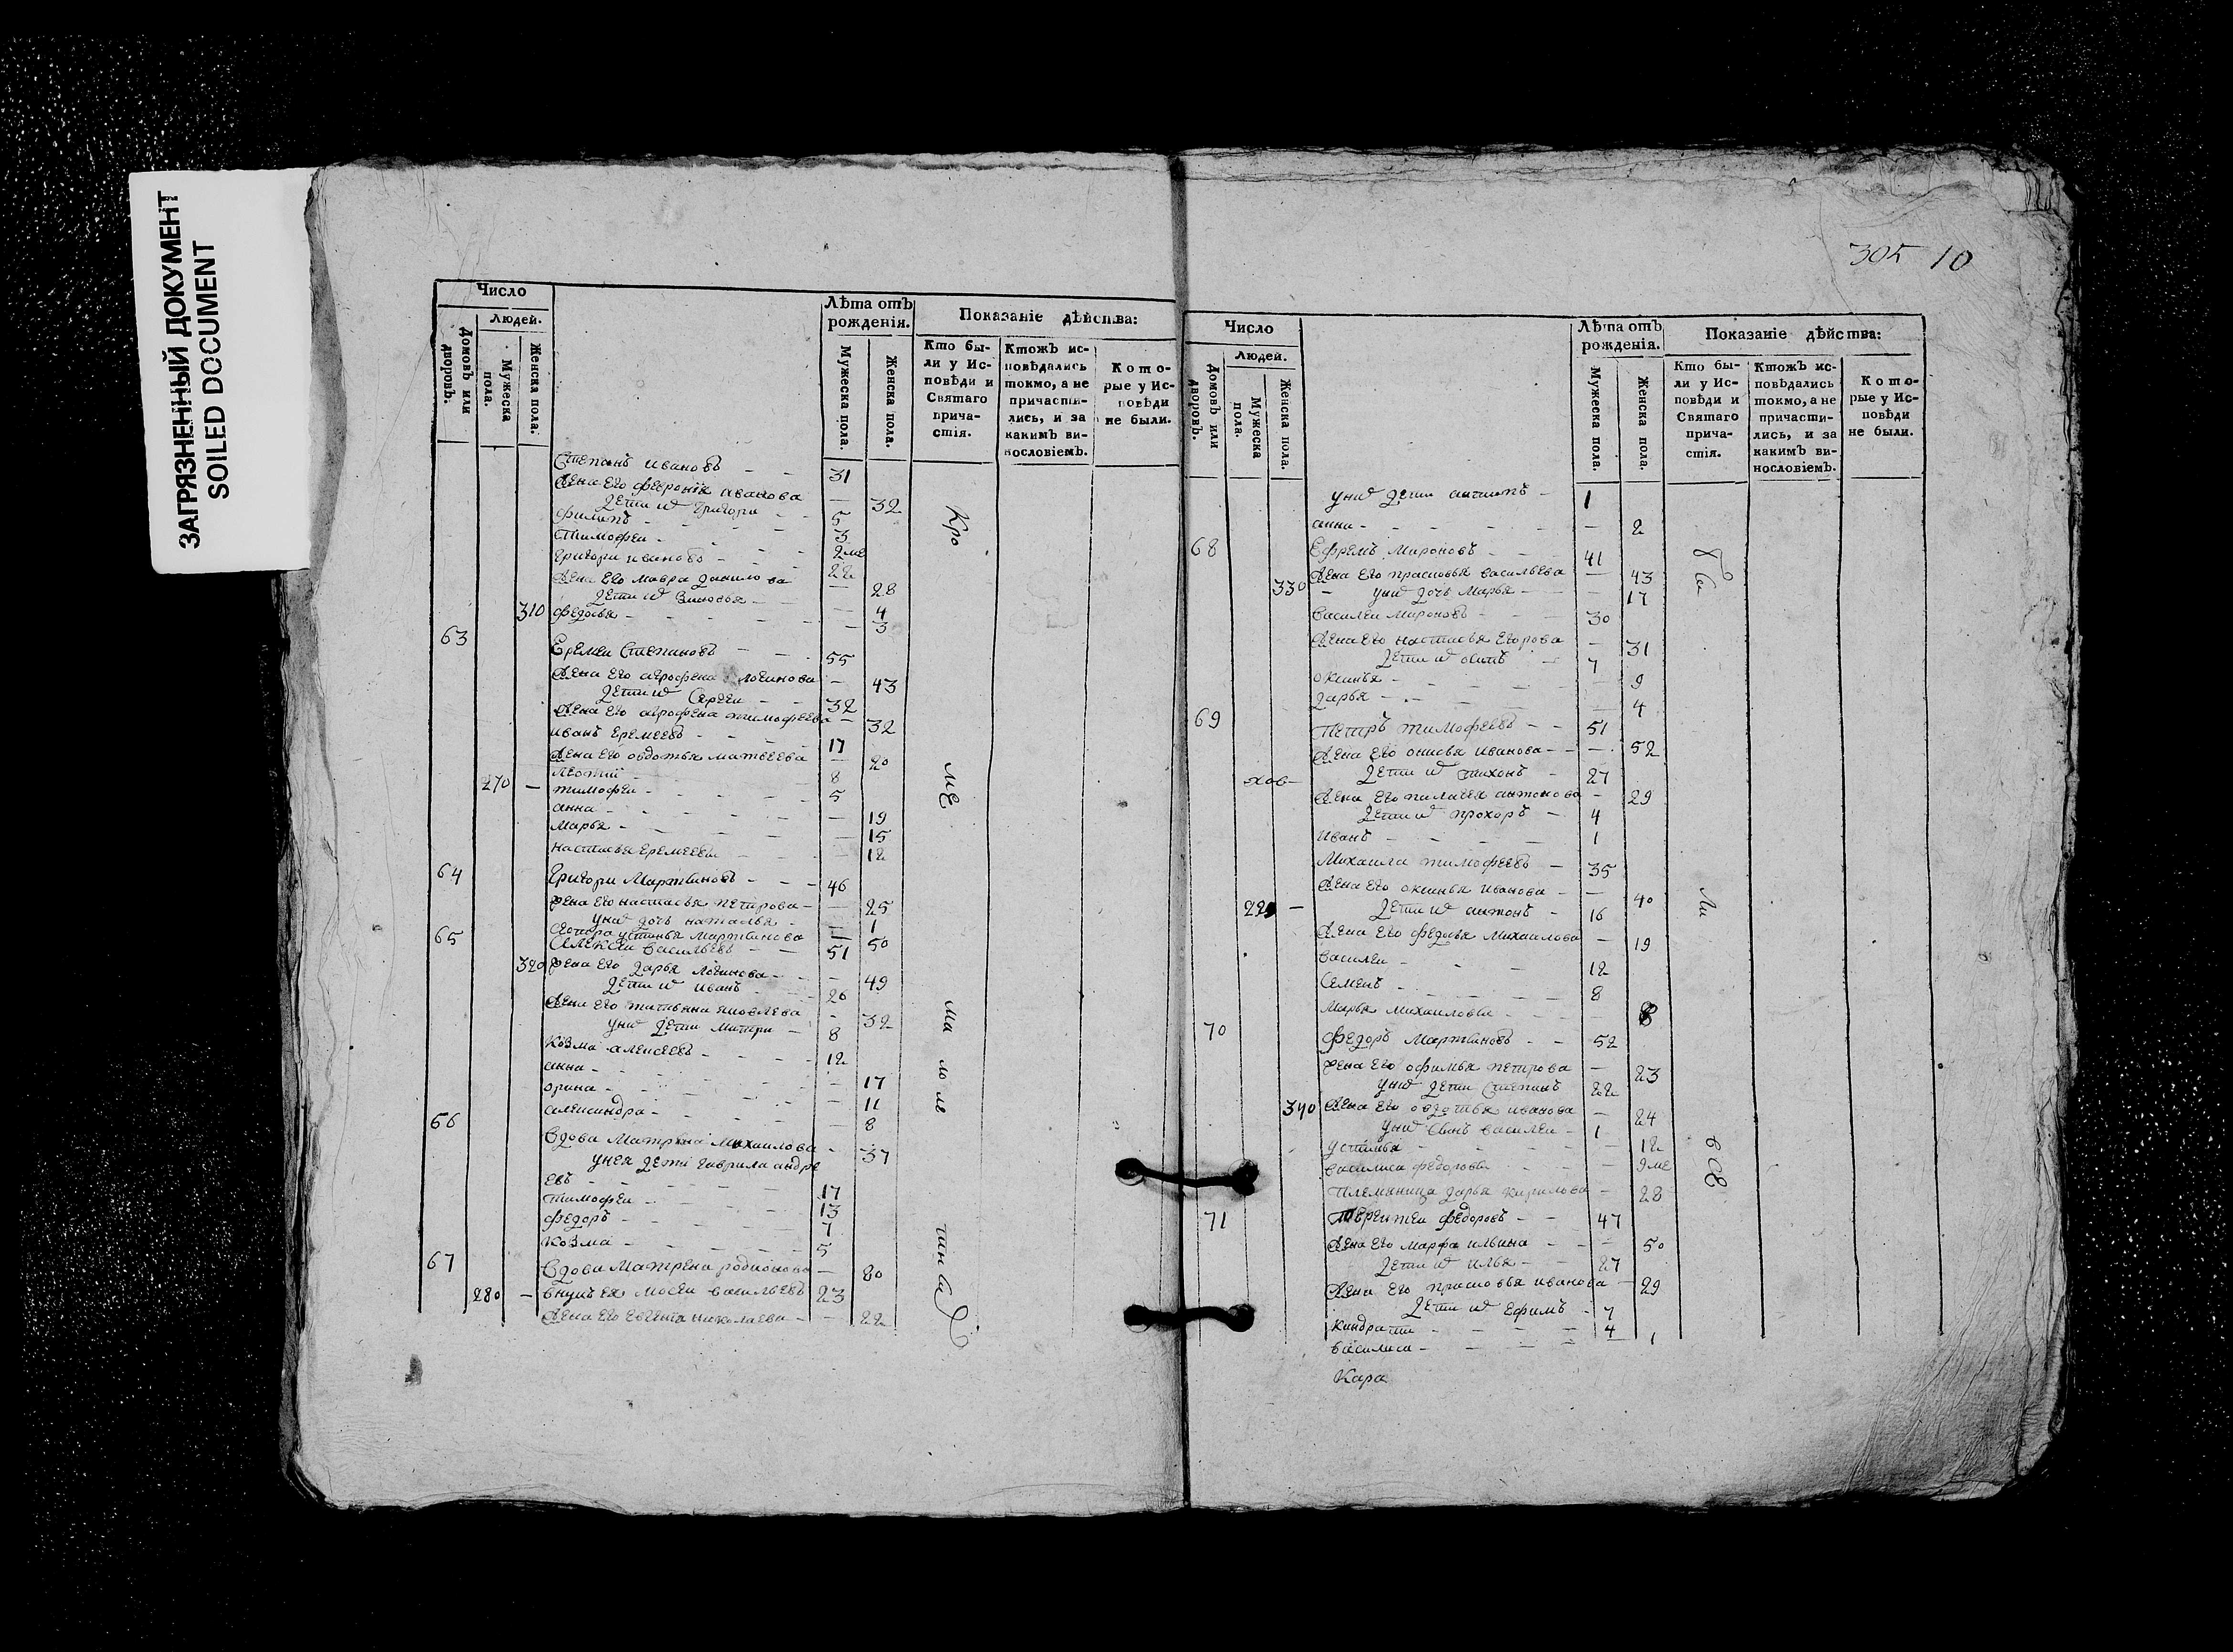 ЗАГРЯЗНЕННЫЙ ДОКУМЕНТ
SOILED DOCUMENT
305 10
Число
Людей.
Домовъ или дворовъ.
Мужеска пола.
Женска пола.
Лѣта отъ рожденія.
Мужеска пола.
Женска пола.
Показаніе дѣйства:
Кто бы-
ли у Ис-
повѣди и
Святаго
прича-
стія.
Ктожъ ис-
повѣдались
токмо, а не
причасти-
лись, и за
какимъ ви-
нословіемъ.
Кото-
рые у Ис-
повѣди
не были.
Степанъ Ивановъ 31
Жена Его Феврония Иванова 32
Дети их Григори 5
Филипъ 3
Тимофеи 2 ме
Григори Ивановъ 22
Жена Его Мавра Данилова 28
Дети их Зиновья 4
310 Федосья 3
63 Еремеи Степановъ 55
Жена Его Агрофена Логинова 43
Дети их Сергеи 32
Жена Его Агрофена Тимофеева 32
Иванъ Еремеевъ 17
Жена Его Овдотья Матвеева 20
Леонтии 8
270 Тимофеи 5
Анна 19
Марья 15
Настасья Еремеевы 12
64 Григори Мартиновъ 46
Жена Его Настасья Петрова 25
У них дочь Наталья 1
Сестра Устинья Мартинова 50
65 Алексеи Васильевъ 51
320 Жена Его Дарья Логинова 49
Дети их Иванъ 26
Жена Его Татьяна Яковлева 32
У них дети Митри 8
Козма Алексеевъ 12
Анна 17
Орина 11
Александра 8
66 Вдова Матрена Михаилова 37
У нея дети Гаврила Андре
евъ 17
Тимофеи 13
Федоръ 7
Козма 5
67 Вдова Матрена Родионова 80
280 Внукъ Ея Мосеи Васильевъ 23
Жена Его Евгения Николаева 22
Кро
ме
ма
ло
ле
тни
х
Число
Людей.
Домовъ или дворовъ.
Мужеска пола.
Женска пола.
Лѣта отъ рожденія.
Мужеска пола.
Женска пола.
Показаніе дѣйства:
Кто бы-
ли у Ис-
повѣди и
Святаго
прича-
стія.
Ктожъ ис-
повѣдались
токмо, а не
причасти-
лись, и за
какимъ ви-
нословіемъ.
Кото-
рые у Ис-
повѣди
не были.
У них дети Антипъ 1
Анна 2
68 Ефремъ Мироновъ 41
Жена Его Прасковья Васильева 43
330 У них дочь Марья 17
Василеи Мироновъ 30
Жена Его Настасья Егорова 31
Дети их 7
Оксинья 9
Дарья 4
69 Петръ Тимофеевъ 51
Жена Его Онисья Иванова 52
Дети их Тихонъ 27
Жена Его Пилагея Антонова 29
Дети их Прохоръ 4
Иванъ 1
Михаила Тимофеевъ 35
Жена Его Оксинья Иванова 40
Дети их Антонъ 16
Жена Его Федосья Михаилова 19
Василеи 12
Семенъ 8
Марья Михаиловы 8
70 Федоръ Мартиновъ 52
Жена Его Офимья Петрова 23
У них дети Степанъ 22
340 Жена Его Овдотья Иванова 24
У них сынъ Василеи 1
Устинья 12
Василиса Федоровы 9 ме
Племяница Дарья Кирилова 28
71 Терентеи Федоровъ 47
Жена Его Марфа Ильина 50
Дети их Илья 27
Жена Его Прасковья Иванова 29
Дети их Ефимъ 7
Кандрати 4
Василиса 1
Кара
бы
ли
все